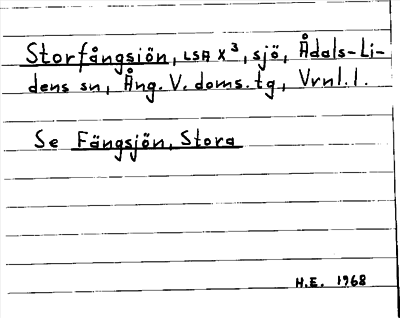 Storfångsjön, LSA X³, sjö, Ådals-Li-
dens sn, Ång. V. doms. tg, Vrnl. l.
Se Fängsjön, Stora
H.E. 1968